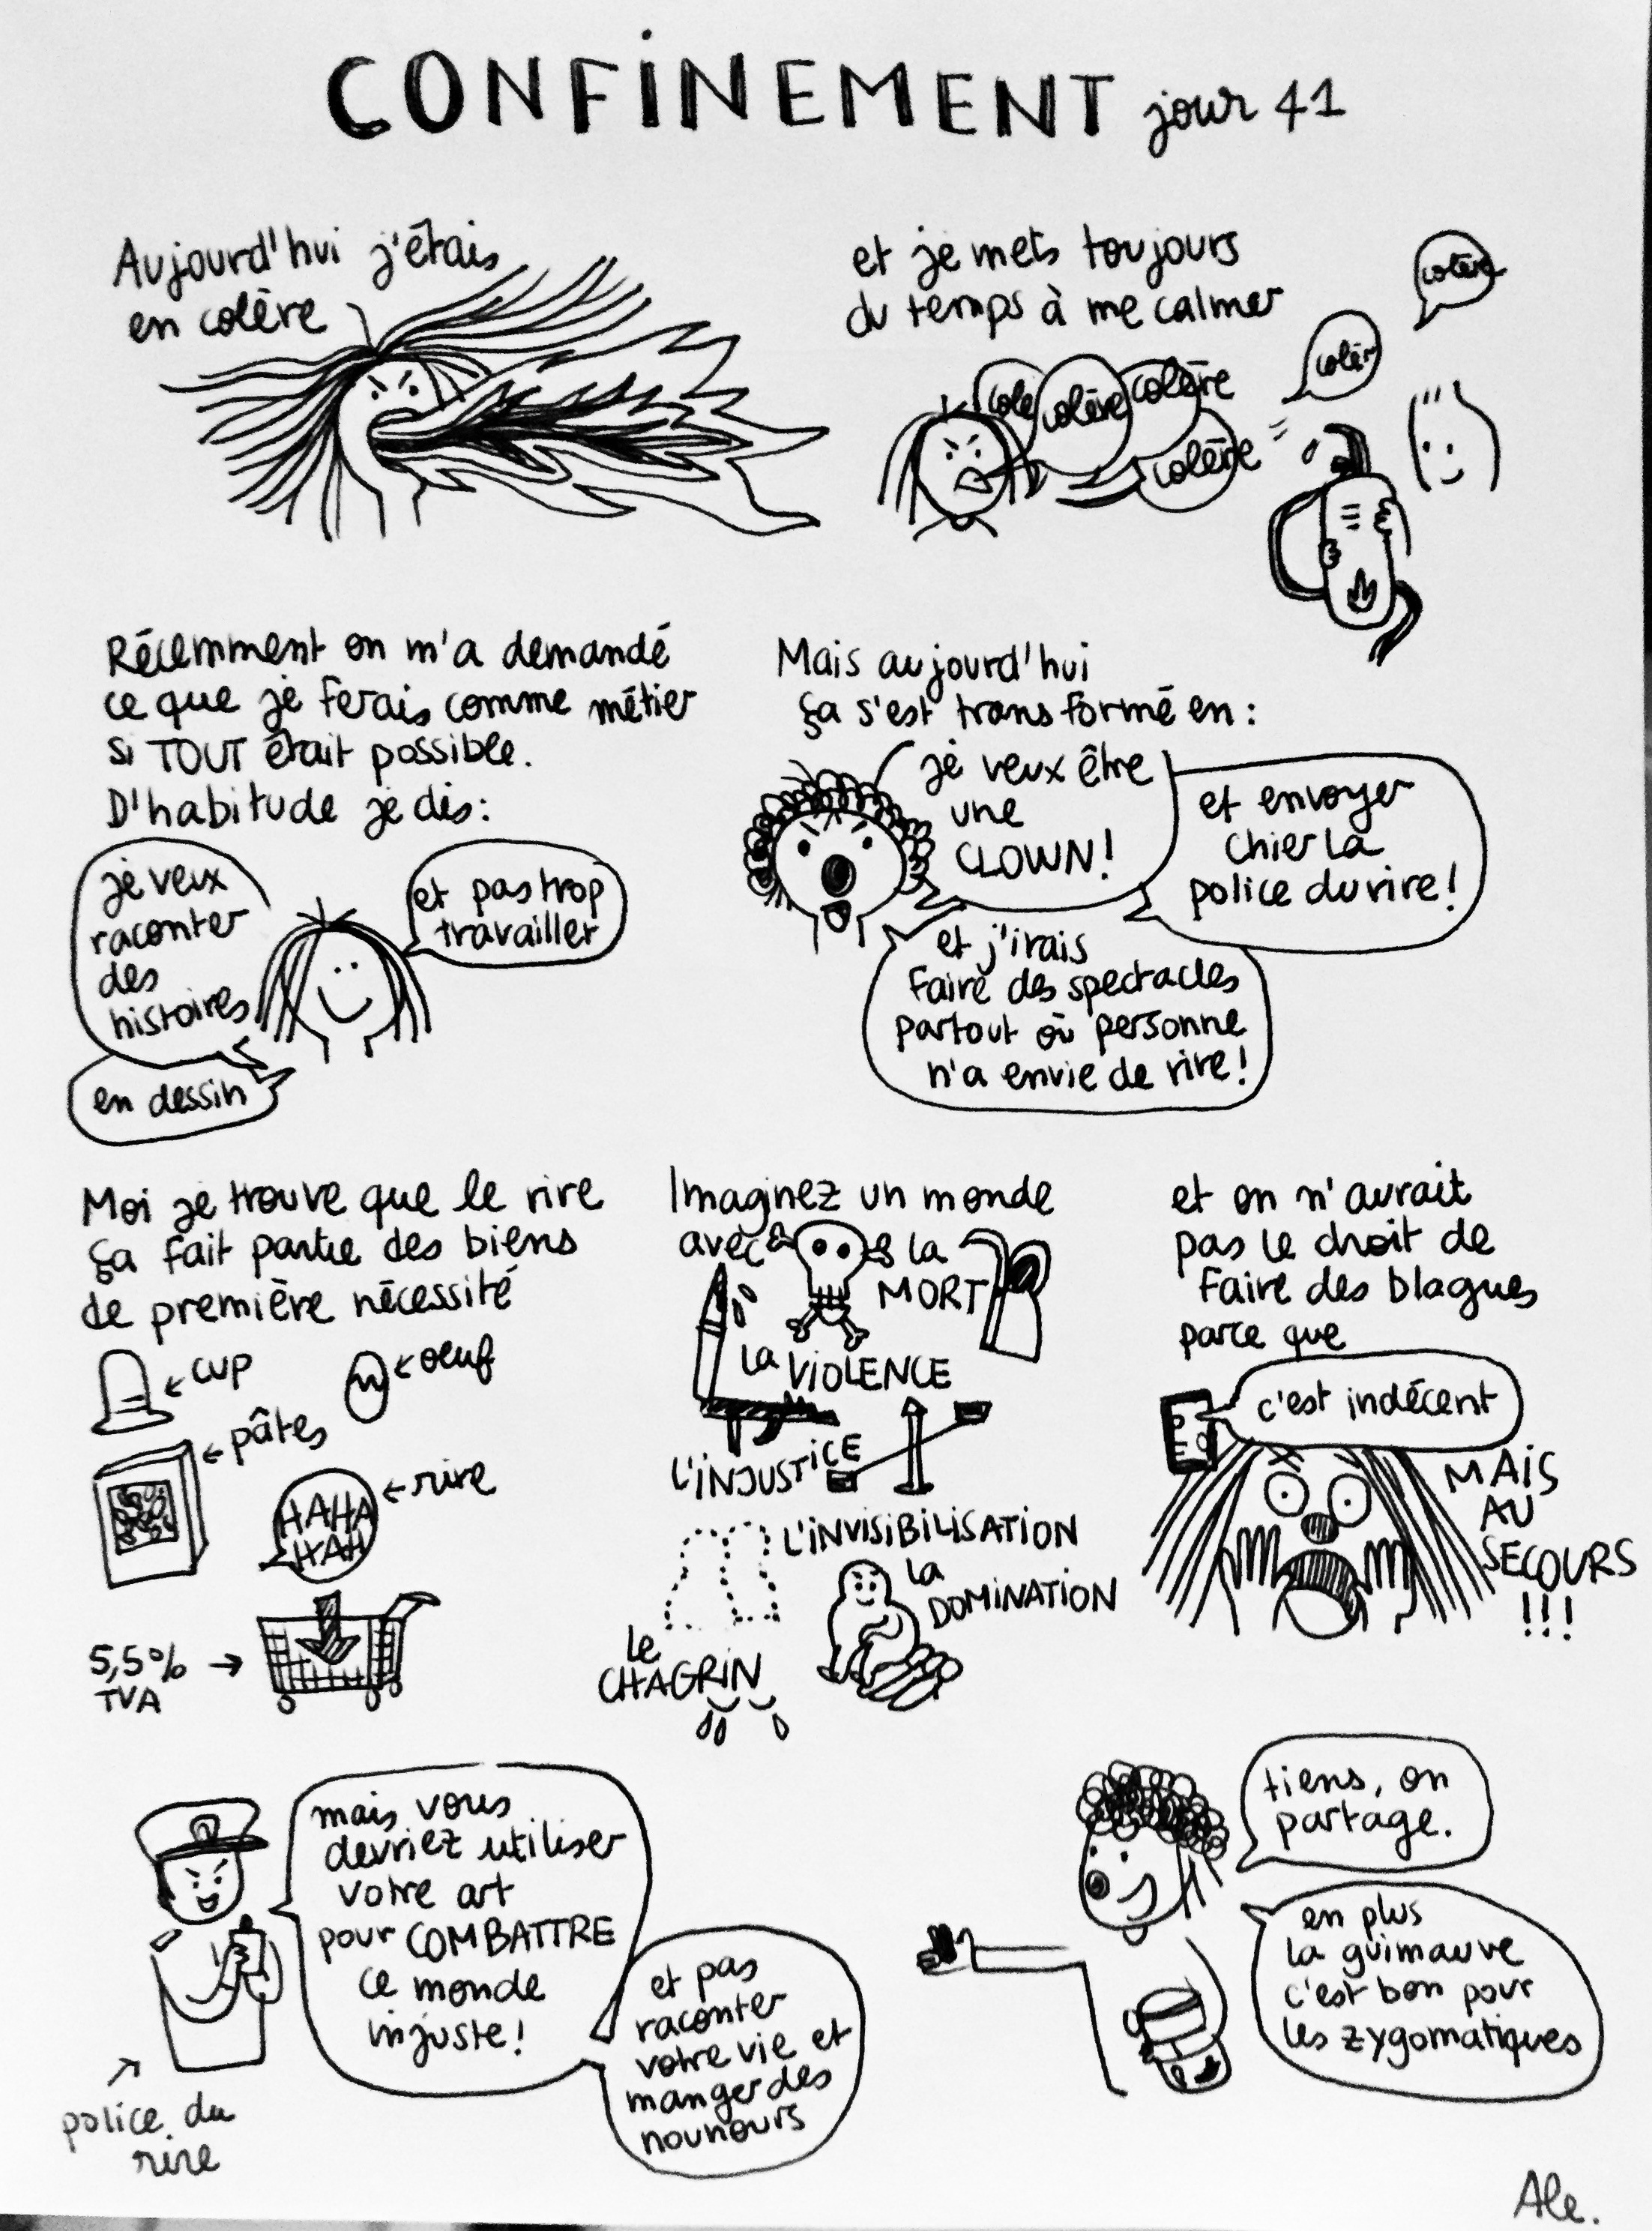 CONFINEMENT jour 41
Aujourd'hui j'étais
en colère
et je mets toujours
du temps à me calmer
colè
colère
colère
colère
colèr
colère
Récemment on m'a demandé
ce que je ferais comme métier
si TOUT était possible.
D'habitude je dis:
je veux
raconter
des
histoires
et pas trop
travailler
en dessin
Mais aujourd'hui
ça s'est transformé en:
je veux être
une
CLOWN!
et envoyer
chier la
police du rire!
et j'irais
faire des spectacles
partout où personne
n'a envie de rire!
Moi je trouve que le rire
ça fait partie des biens
de première nécessité
cup
oeuf
pâtes
rire
HAHA
HAH
5,5%
TVA
Imaginez un monde
avec la
MORT
la VIOLENCE
L'INJUSTICE
L'INVISIBILISATION
la
DOMINATION
le
CHAGRIN
et on n'aurait
pas le droit de
faire des blagues
parce que
c'est indécent
MAIS
AU
SECOURS
!!!
mais vous
devriez utiliser
votre art
pour COMBATTRE
ce monde
injuste!
et pas
raconter
votre vie et
manger des
nounours
police du
rire
tiens, on
partage.
en plus
la guimauve
c'est bon pour
les zygomatiques
Ale.